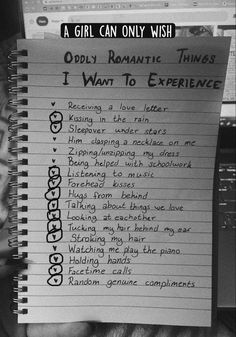 A GIRL CAN ONLY WISH
ODDLY ROMANTIC THINGS
I WANT TO EXPERIENCE
Receiving a love letter
Kissing in the rain
Sleepover under stars
Him clasping a necklace on me
Zipping/unzipping my dress
Being helped with schoolwork
Listening to music
Forehead kisses
Hugs from behind
Talking about things we love
Looking at eachother
Tucking my hair behind my ear
Stroking my hair
Watching me play the piano
Holding hands
Facetime calls
Random genuine compliments